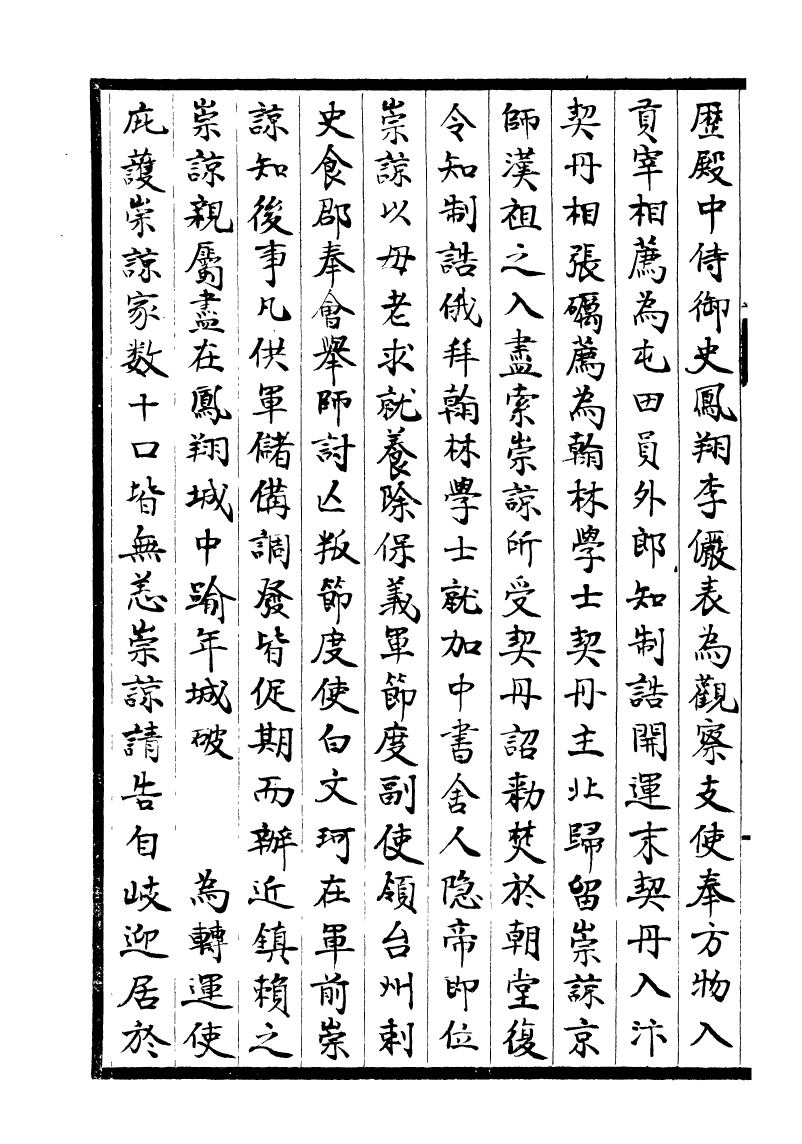 歴殿中侍御史鳳翔李儼表為觀察支使奉方物入
貢宰相薦為屯田員外郎知制誥開運末契丹入汴
契丹相張礪薦為翰林學士契丹主北歸留崇諒京
師漢祖之入盡索崇諒所受契丹詔勅焚於朝堂復
令知制誥俄拜翰林學士就加中書舍人隐帝即位
崇諒以母老求就養除保義軍節度副使領台州刺
史食郡奉會舉師討亾叛節度使白文珂在軍前崇
諒知後事凡供軍儲備調發皆促期而辦近鎮賴之
崇諒親屬盡在鳳翔城中踰年城破　　為轉運使
庇護崇諒家数十口皆無恙崇諒請告自岐迎居於